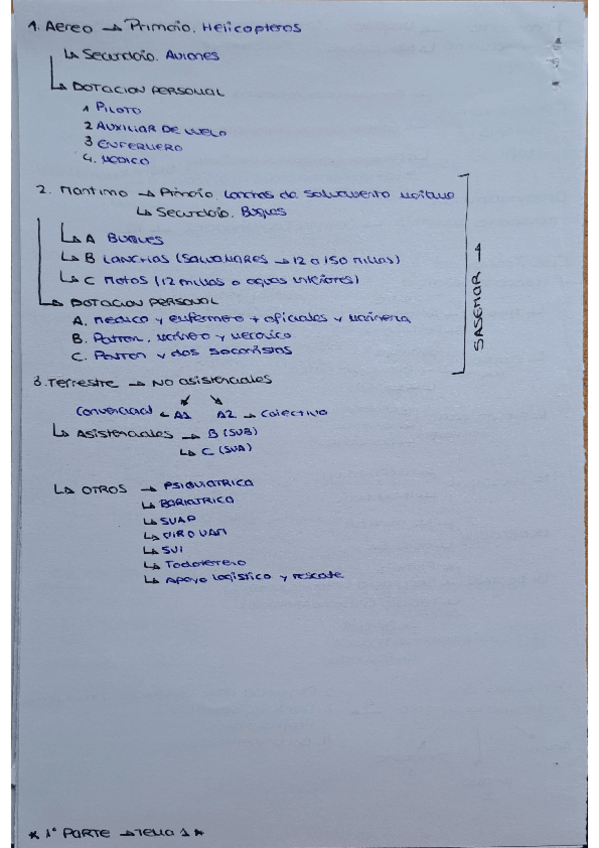 1. Aereo → Primario. Helicopteros
↳ Secundario. Aviones
↳ DOTACION PERSONAL
1 PILOTO
2 AUXILIAR DE VUELO
3 ENFERMERO
4. MEDICO
2. Maritimo → Primario. Lanchas de Salvamento Maritimo
↳ Secundario. Buques
↳ A BUQUES
↳ B LANCHAS (SALVAMARES → 12 a 150 millas)
↳ C Motos (12 millas o aguas interiores)
↳ DOTACION PERSONAL
A. medico y enfermero + oficiales y marineria
B. Patron, marinero y mecanico
C. Patron y dos socorristas
SASEMAR →
3. Terrestre → NO asistenciales
Convencional ← A1 A2 → Colectivo
↳ Asistenciales → B (SVB)
↳ C (SVA)
↳ OTROS → PSIQUIATRICA
↳ BARIATRICA
↳ SUAP
↳ VIR O VAM
↳ SVI
↳ Todoterreno
↳ Apoyo logistico y rescate
* 1ª PARTE → TEMA 1 *